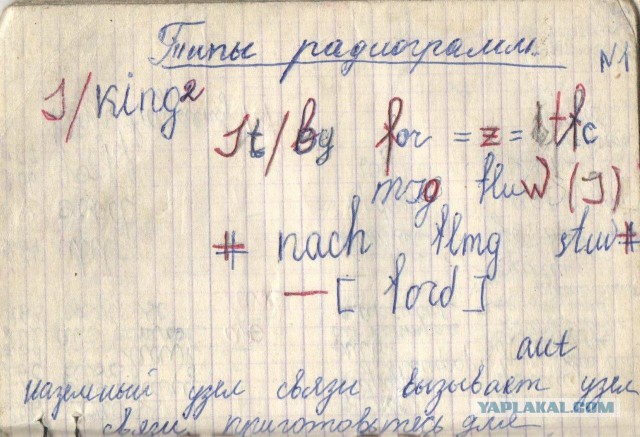 Типы радиограмм.
N1
J/king2
Jt/by for = z = ltfc
msg tluw (J)
# nach tlmg stw #
— [ ford ]
aut
наземный узел связи вызывает узел
связи приготовьтесь для
YAPLAKAL.COM